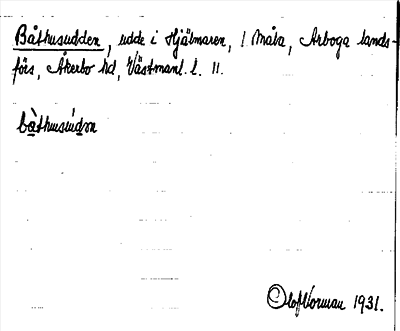 Båthusudden, udde i Hjälmaren, 1 Måla, Arboga lands-
förs, Åkerbo hd, Västmanl. l. 11.
båthusud̶n
Olof Norman 1931.